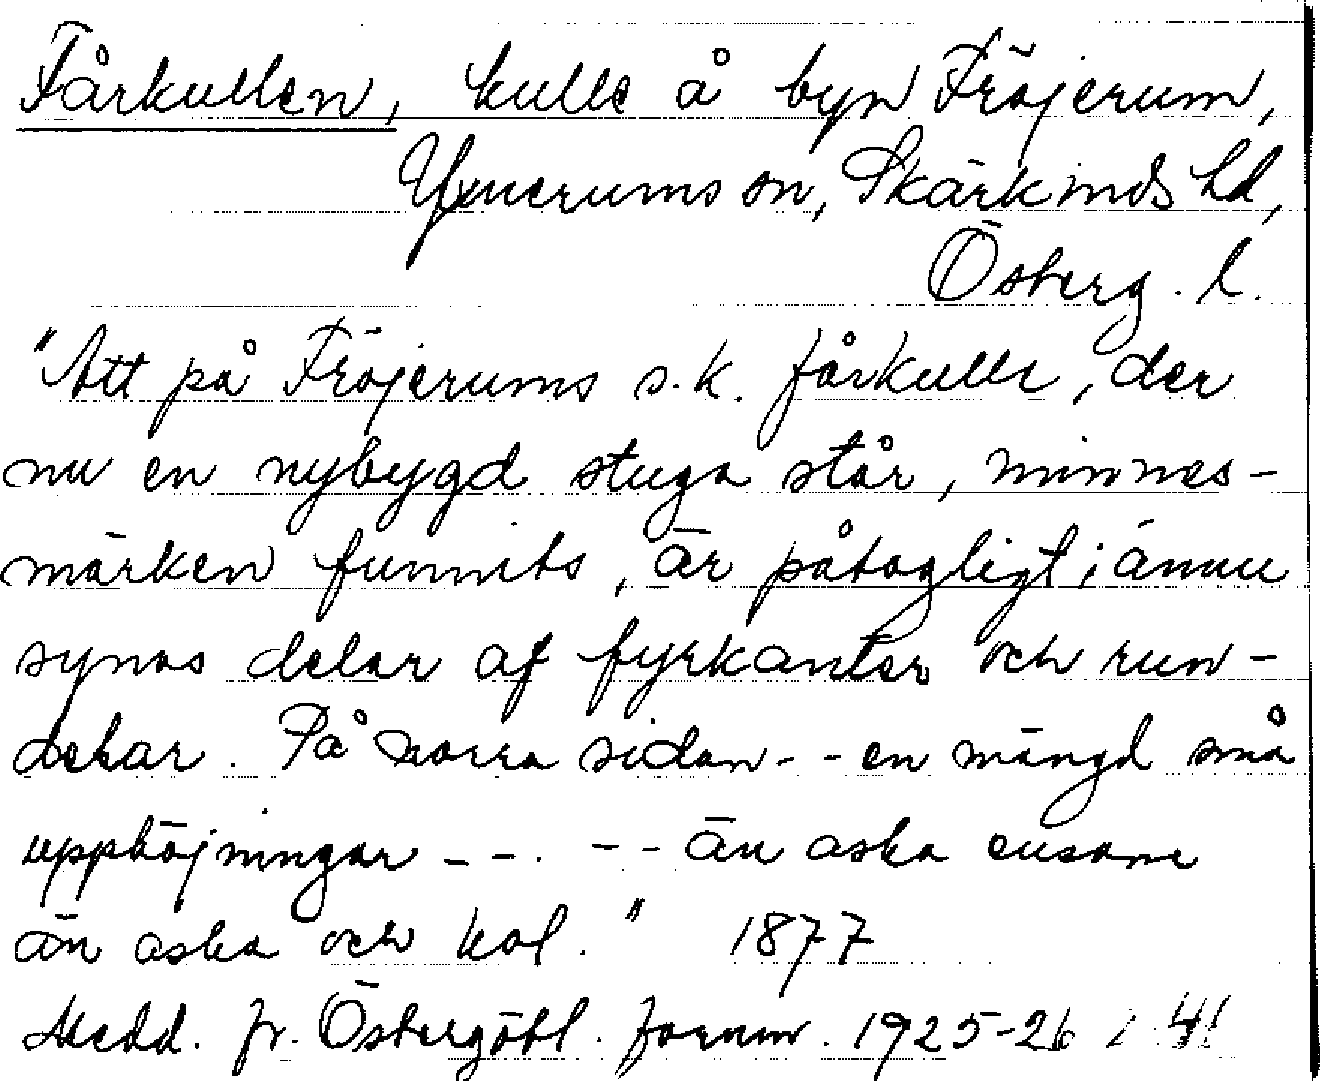 Fårkullen, kulle å byn Fröjerum,
Yxnerums sn, Skärkinds hd,
Österg. l.
"Att på Fröjerums s.k. fårkulle, der
nu en nybygd stuga står, minnes-
märken funnits, är påtagligt; ännu
synas delar af fyrkanter och run-
delar. På norra sidan - - en mängd små
upphöjningar - - . - - än aska ensam
än aska och kol." 1877
Medd. fr. Östergötl. fornm. 1925-26 s. 41